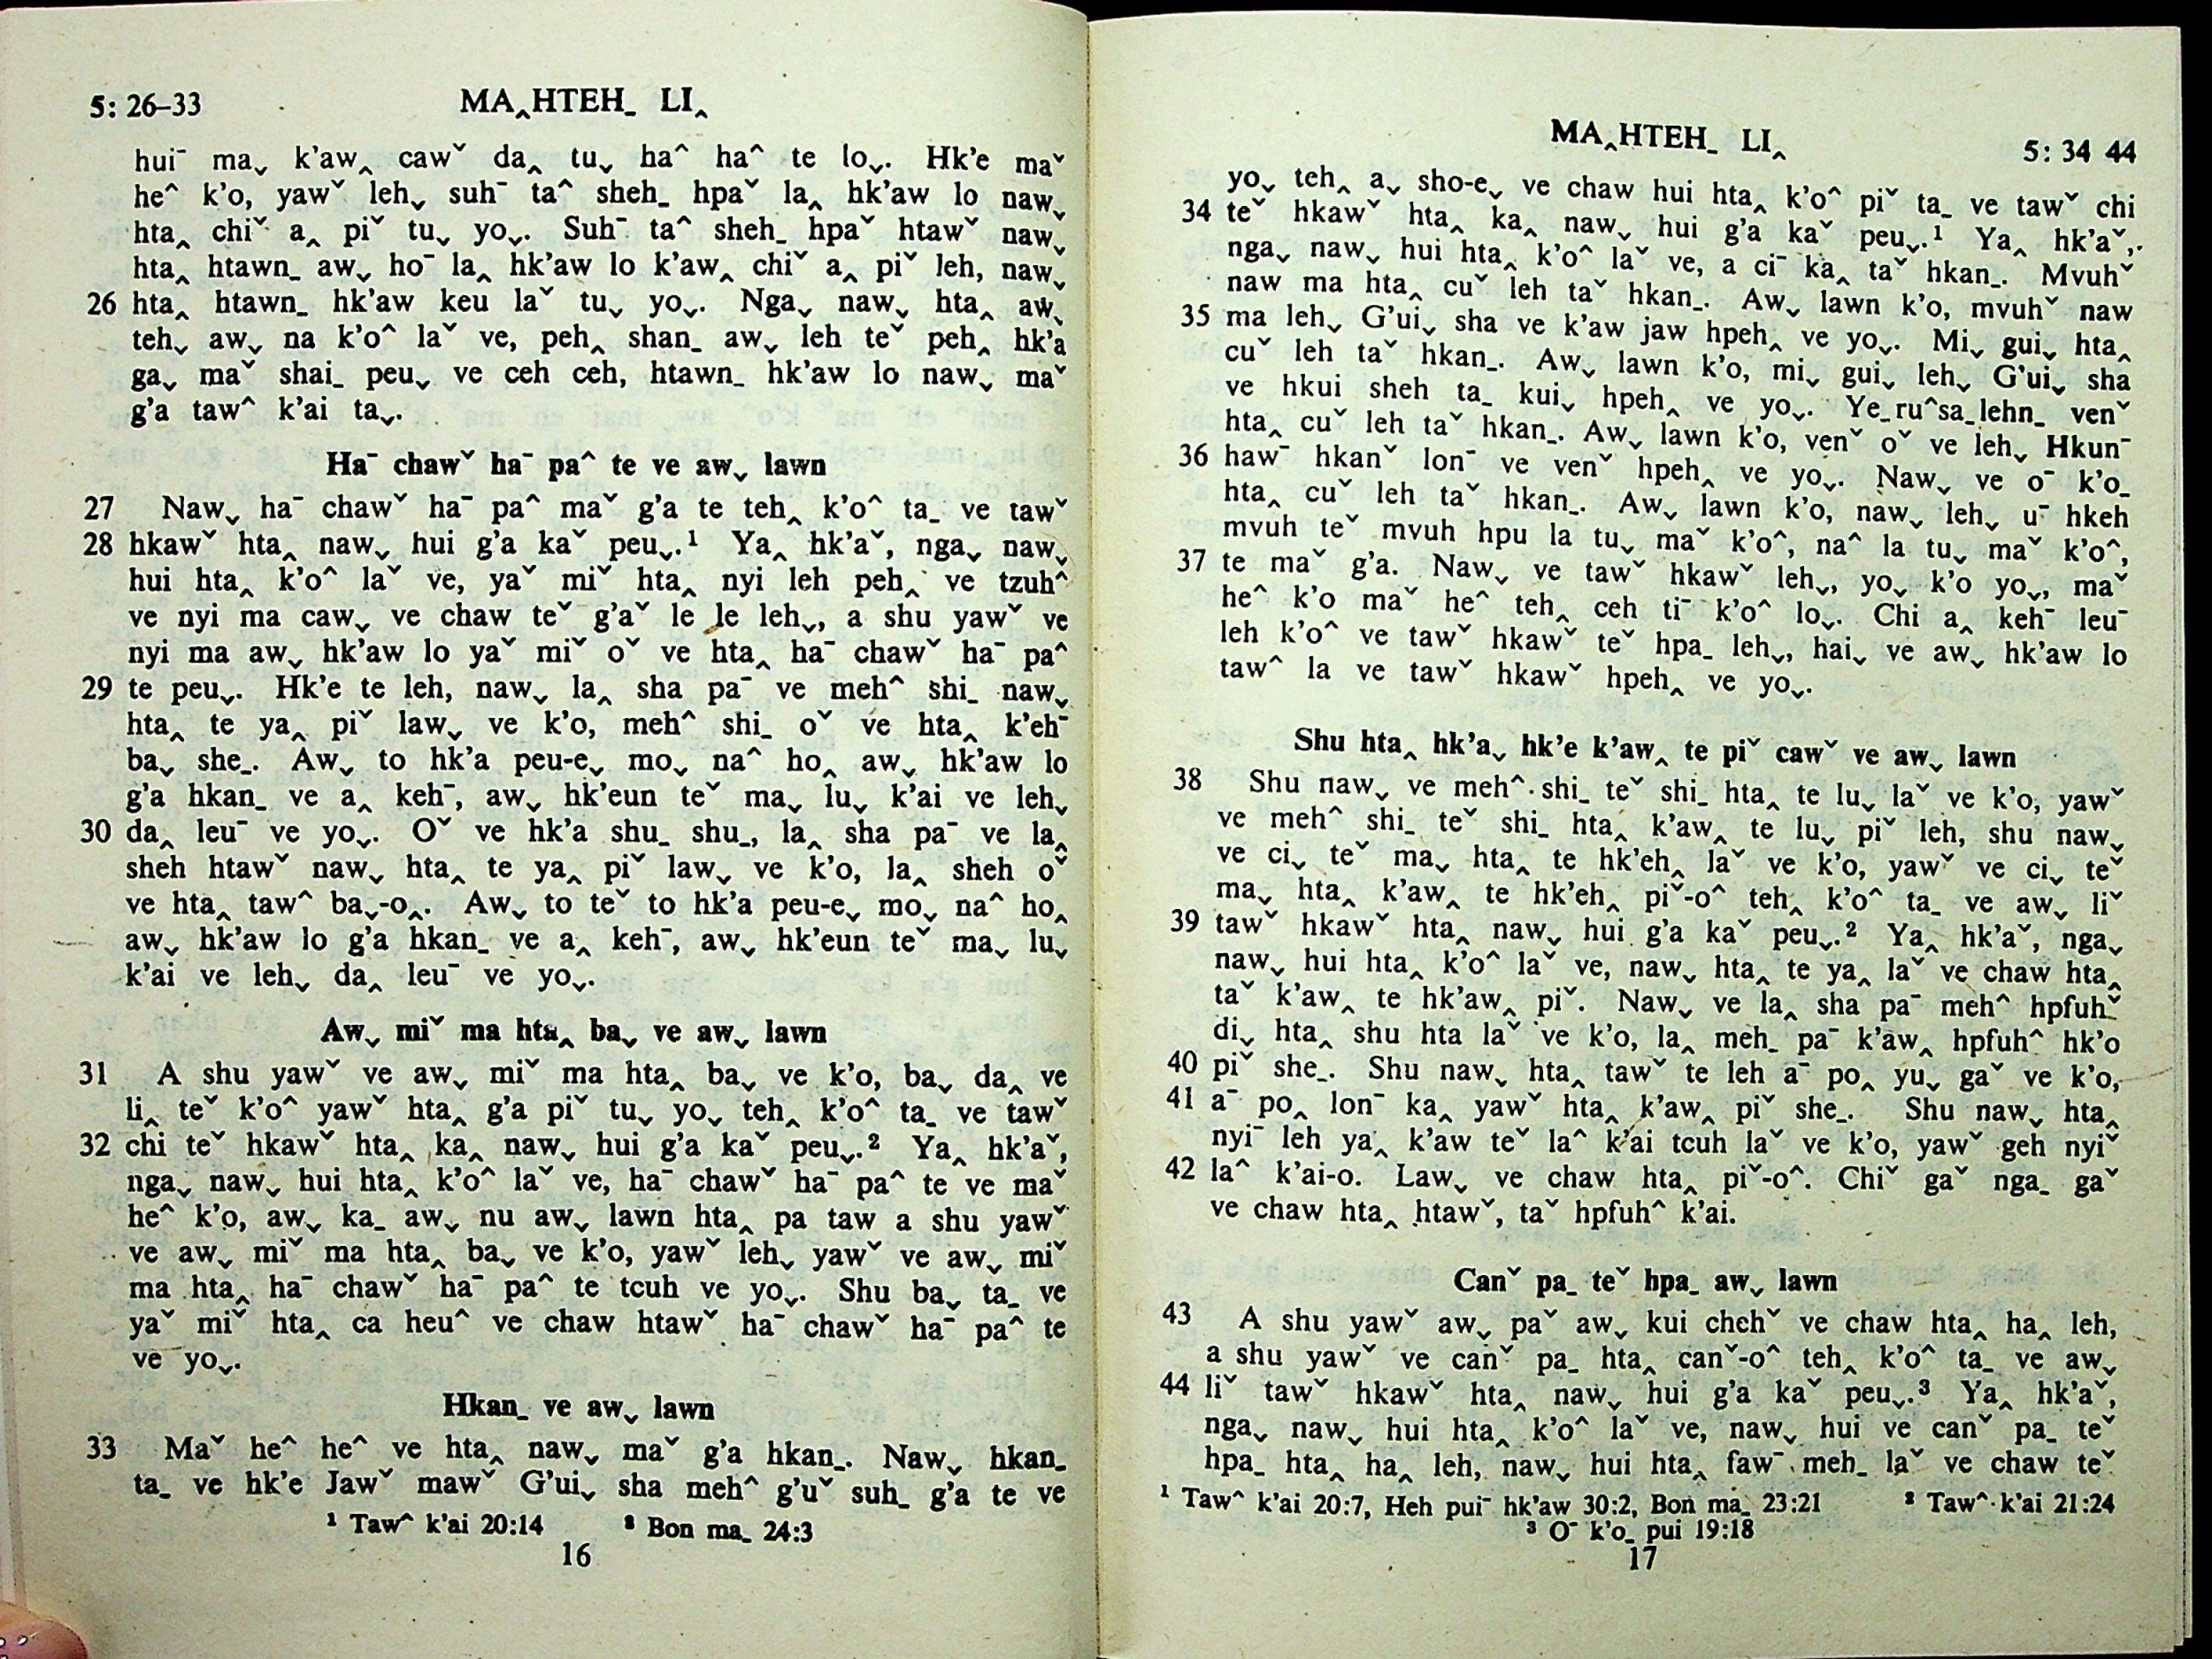 5: 26–33 MA‸HTEH_ LI‸
huiˉ ma˯ k'aw‸ cawˇ da‸ tu˯ ha^ ha^ te lo˯. Hk'e maˇ
he^ k'o, yawˇ leh˯ suhˉ ta^ sheh_ hpaˇ la‸ hk'aw lo naw˯
hta‸ chiˇ a‸ piˇ tu˯ yo˯. Suhˉ ta^ sheh_ hpaˇ htawˇ naw˯
hta‸ htawn_ aw˯ hoˉ la‸ hk'aw lo k'aw‸ chiˇ a‸ piˇ leh, naw˯
26 hta‸ htawn_ hk'aw keu laˇ tu˯ yo˯. Nga˯ naw˯ hta‸ aw˯
teh˯ aw˯ na k'o^ laˇ ve, peh‸ shan_ aw˯ leh teˇ peh‸ hk'a
ga˯ maˇ shai_ peu˯ ve ceh ceh, htawn_ hk'aw lo naw˯ maˇ
g'a taw^ k'ai ta˯.
Haˉ chawˇ haˉ pa^ te ve aw˯ lawn
27 Naw˯ haˉ chawˇ haˉ pa^ maˇ g'a te teh‸ k'o^ ta_ ve tawˇ
28 hkawˇ hta‸ naw˯ hui g'a kaˇ peu˯.¹ Ya‸ hk'aˇ, nga˯ naw˯
hui hta‸ k'o^ laˇ ve, yaˇ miˇ hta‸ nyi leh peh‸ ve tzuh^
ve nyi ma caw˯ ve chaw teˇ g'aˇ le le leh˯, a shu yawˇ ve
nyi ma aw˯ hk'aw lo yaˇ miˇ oˇ ve hta‸ haˉ chawˇ haˉ pa^
29 te peu˯. Hk'e te leh, naw˯ la‸ sha paˉ ve meh^ shi_ naw˯
hta‸ te ya‸ piˇ law˯ ve k'o, meh^ shi_ oˇ ve hta‸ k'ehˉ
ba˯ she_. Aw˯ to hk'a peu-e˯ mo˯ na^ ho‸ aw˯ hk'aw lo
g'a hkan_ ve a‸ kehˉ, aw˯ hk'eun teˇ ma˯ lu˯ k'ai ve leh˯
30 da‸ leuˉ ve yo˯. Oˇ ve hk'a shu_ shu_, la‸ sha paˉ ve la‸
sheh htawˇ naw˯ hta‸ te ya‸ piˇ law˯ ve k'o, la‸ sheh oˇ
ve hta‸ taw^ ba˯-o‸. Aw˯ to teˇ to hk'a peu-e˯ mo˯ na^ ho‸
aw˯ hk'aw lo g'a hkan_ ve a‸ kehˉ, aw˯ hk'eun teˇ ma˯ lu˯
k'ai ve leh˯ da‸ leuˉ ve yo˯.
Aw˯ miˇ ma hta‸ ba˯ ve aw˯ lawn
31 A shu yawˇ ve aw˯ miˇ ma hta‸ ba˯ ve k'o, ba˯ da‸ ve
li‸ teˇ k'o^ yawˇ hta‸ g'a piˇ tu˯ yo˯ teh‸ k'o^ ta_ ve tawˇ
32 chi teˇ hkawˇ hta‸ ka‸ naw˯ hui g'a kaˇ peu˯.² Ya‸ hk'aˇ,
nga˯ naw˯ hui hta‸ k'o^ laˇ ve, haˉ chawˇ haˉ pa^ te ve maˇ
he^ k'o, aw˯ ka_ aw˯ nu aw˯ lawn hta‸ pa taw a shu yawˇ
ve aw˯ miˇ ma hta‸ ba˯ ve k'o, yawˇ leh˯ yawˇ ve aw˯ miˇ
ma hta‸ haˉ chawˇ haˉ pa^ te tcuh ve yo˯. Shu ba˯ ta_ ve
yaˇ miˇ hta‸ ca heu^ ve chaw htawˇ haˉ chawˇ haˉ pa^ te
ve yo˯.
Hkan_ ve aw˯ lawn
33 Maˇ he^ he^ ve hta‸ naw˯ maˇ g'a hkan_. Naw˯ hkan_
ta_ ve hk'e Jawˇ mawˇ G'ui˯ sha meh^ g'uˇ suh_ g'a te ve
¹ Taw^ k'ai 20:14 ² Bon ma_ 24:3
16
MA‸HTEH_ LI‸ 5: 34 44
yo˯ teh‸ a˯ sho-e˯ ve chaw hui hta‸ k'o^ piˇ ta_ ve tawˇ chi
34 teˇ hkawˇ hta‸ ka‸ naw˯ hui g'a kaˇ peu˯.¹ Ya‸ hk'aˇ,
nga˯ naw˯ hui hta‸ k'o^ laˇ ve, a ciˉ ka‸ taˇ hkan_. Mvuhˇ
naw ma hta‸ cuˇ leh taˇ hkan_. Aw˯ lawn k'o, mvuhˇ naw
35 ma leh˯ G'ui˯ sha ve k'aw jaw hpeh‸ ve yo˯. Mi˯ gui˯ hta‸
cuˇ leh taˇ hkan_. Aw˯ lawn k'o, mi˯ gui˯ leh˯ G'ui˯ sha
ve hkui sheh ta_ kui˯ hpeh‸ ve yo˯. Ye_ru^sa_lehn_ venˇ
hta‸ cuˇ leh taˇ hkan_. Aw˯ lawn k'o, venˇ oˇ ve leh˯ Hkunˉ
36 hawˉ hkanˇ lonˉ ve venˇ hpeh‸ ve yo˯. Naw˯ ve oˉ k'o_
hta‸ cuˇ leh taˇ hkan_. Aw˯ lawn k'o, naw˯ leh˯ uˉ hkeh
mvuh teˇ mvuh hpu la tu˯ maˇ k'o^, na^ la tu˯ maˇ k'o^,
37 te maˇ g'a. Naw˯ ve tawˇ hkawˇ leh˯, yo˯ k'o yo˯, maˇ
he^ k'o maˇ he^ teh‸ ceh tiˉ k'o^ lo˯. Chi a‸ kehˉ leuˉ
leh k'o^ ve tawˇ hkawˇ teˇ hpa_ leh˯, hai˯ ve aw˯ hk'aw lo
taw^ la ve tawˇ hkawˇ hpeh‸ ve yo˯.
Shu hta‸ hk'a˯ hk'e k'aw‸ te piˇ cawˇ ve aw˯ lawn
38 Shu naw˯ ve meh^ shi_ teˇ shi_ hta‸ te lu˯ laˇ ve k'o, yawˇ
ve meh^ shi_ teˇ shi_ hta‸ k'aw‸ te lu˯ piˇ leh, shu naw˯
ve ci˯ teˇ ma˯ hta‸ te hk'eh‸ laˇ ve k'o, yawˇ ve ci˯ teˇ
ma˯ hta‸ k'aw‸ te hk'eh‸ piˇ-o^ teh‸ k'o^ ta_ ve aw˯ liˇ
39 tawˇ hkawˇ hta‸ naw˯ hui g'a kaˇ peu˯.² Ya‸ hk'aˇ, nga˯
naw˯ hui hta‸ k'o^ laˇ ve, naw˯ hta‸ te ya‸ laˇ ve chaw hta‸
taˇ k'aw‸ te hk'aw‸ piˇ. Naw˯ ve la‸ sha paˉ meh^ hpfuh^
di˯ hta‸ shu hta laˇ ve k'o, la‸ meh_ paˉ k'aw‸ hpfuh^ hk'o
40 piˇ she_. Shu naw˯ hta‸ tawˇ te leh aˉ po‸ yu˯ gaˇ ve k'o,
41 aˉ po‸ lonˉ ka‸ yawˇ hta‸ k'aw‸ piˇ she_. Shu naw˯ hta‸
nyiˉ leh ya‸ k'aw teˇ la^ k'ai tcuh laˇ ve k'o, yawˇ geh nyiˇ
42 la^ k'ai-o. Law˯ ve chaw hta‸ piˇ-o^. Chiˇ gaˇ nga_ gaˇ
ve chaw hta‸ htawˇ, taˇ hpfuh^ k'ai.
Canˇ pa_ teˇ hpa_ aw˯ lawn
43 A shu yawˇ aw˯ paˇ aw˯ kui chehˇ ve chaw hta‸ ha‸ leh,
a shu yawˇ ve canˇ pa_ hta‸ canˇ-o^ teh‸ k'o^ ta_ ve aw˯
44 liˇ tawˇ hkawˇ hta‸ naw˯ hui g'a kaˇ peu˯.³ Ya‸ hk'aˇ,
nga˯ naw˯ hui hta‸ k'o^ laˇ ve, naw˯ hui ve canˇ pa_ teˇ
hpa_ hta‸ ha‸ leh, naw˯ hui hta‸ fawˉ meh_ laˇ ve chaw teˇ
¹ Taw^ k'ai 20:7, Heh puiˉ hk'aw 30:2, Bon ma_ 23:21 ² Taw^ k'ai 21:24
³ Oˉ k'o_ pui 19:18
17